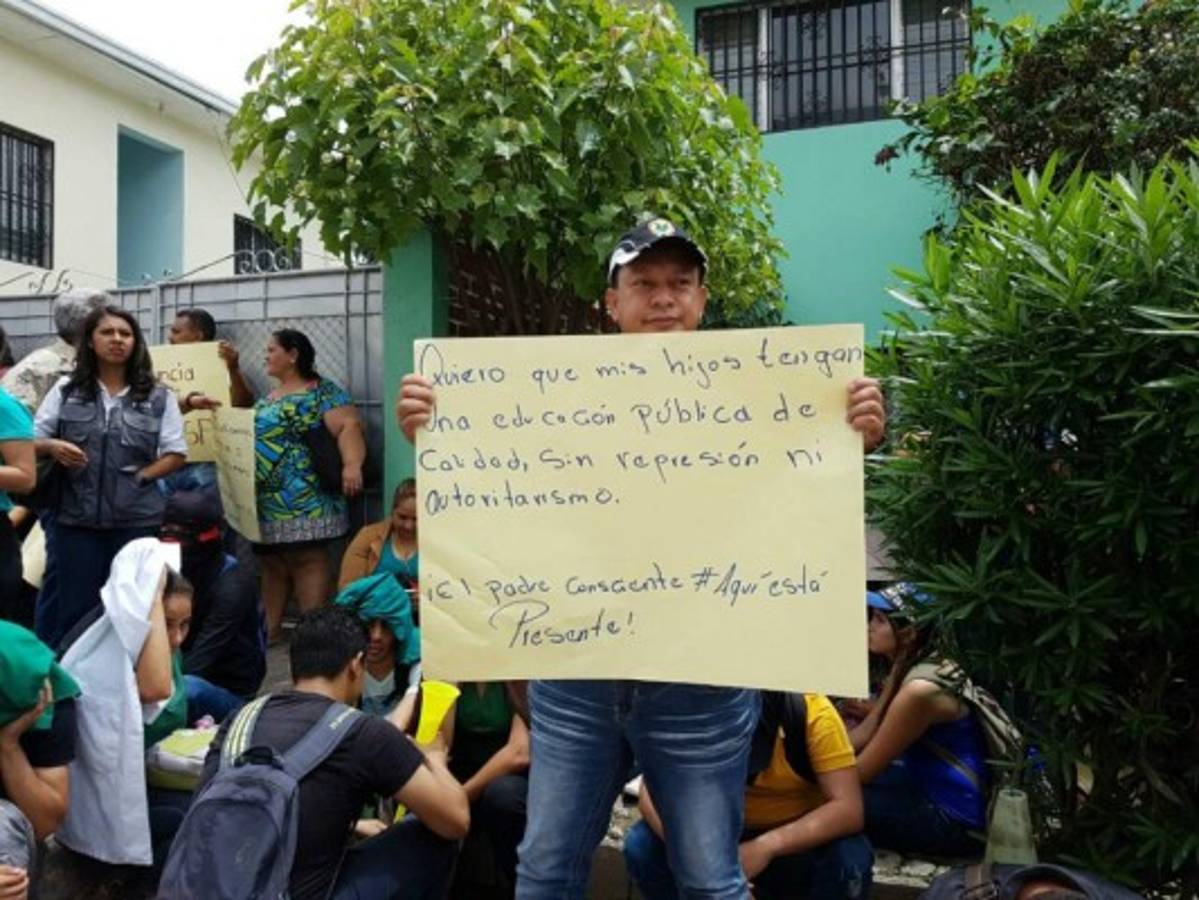 Quiero que mis hijos tengan
Una educación pública de
Calidad, Sin represión ni
autoritarismo.
¡El padre Consciente #Aquí está
Presente!
ncia